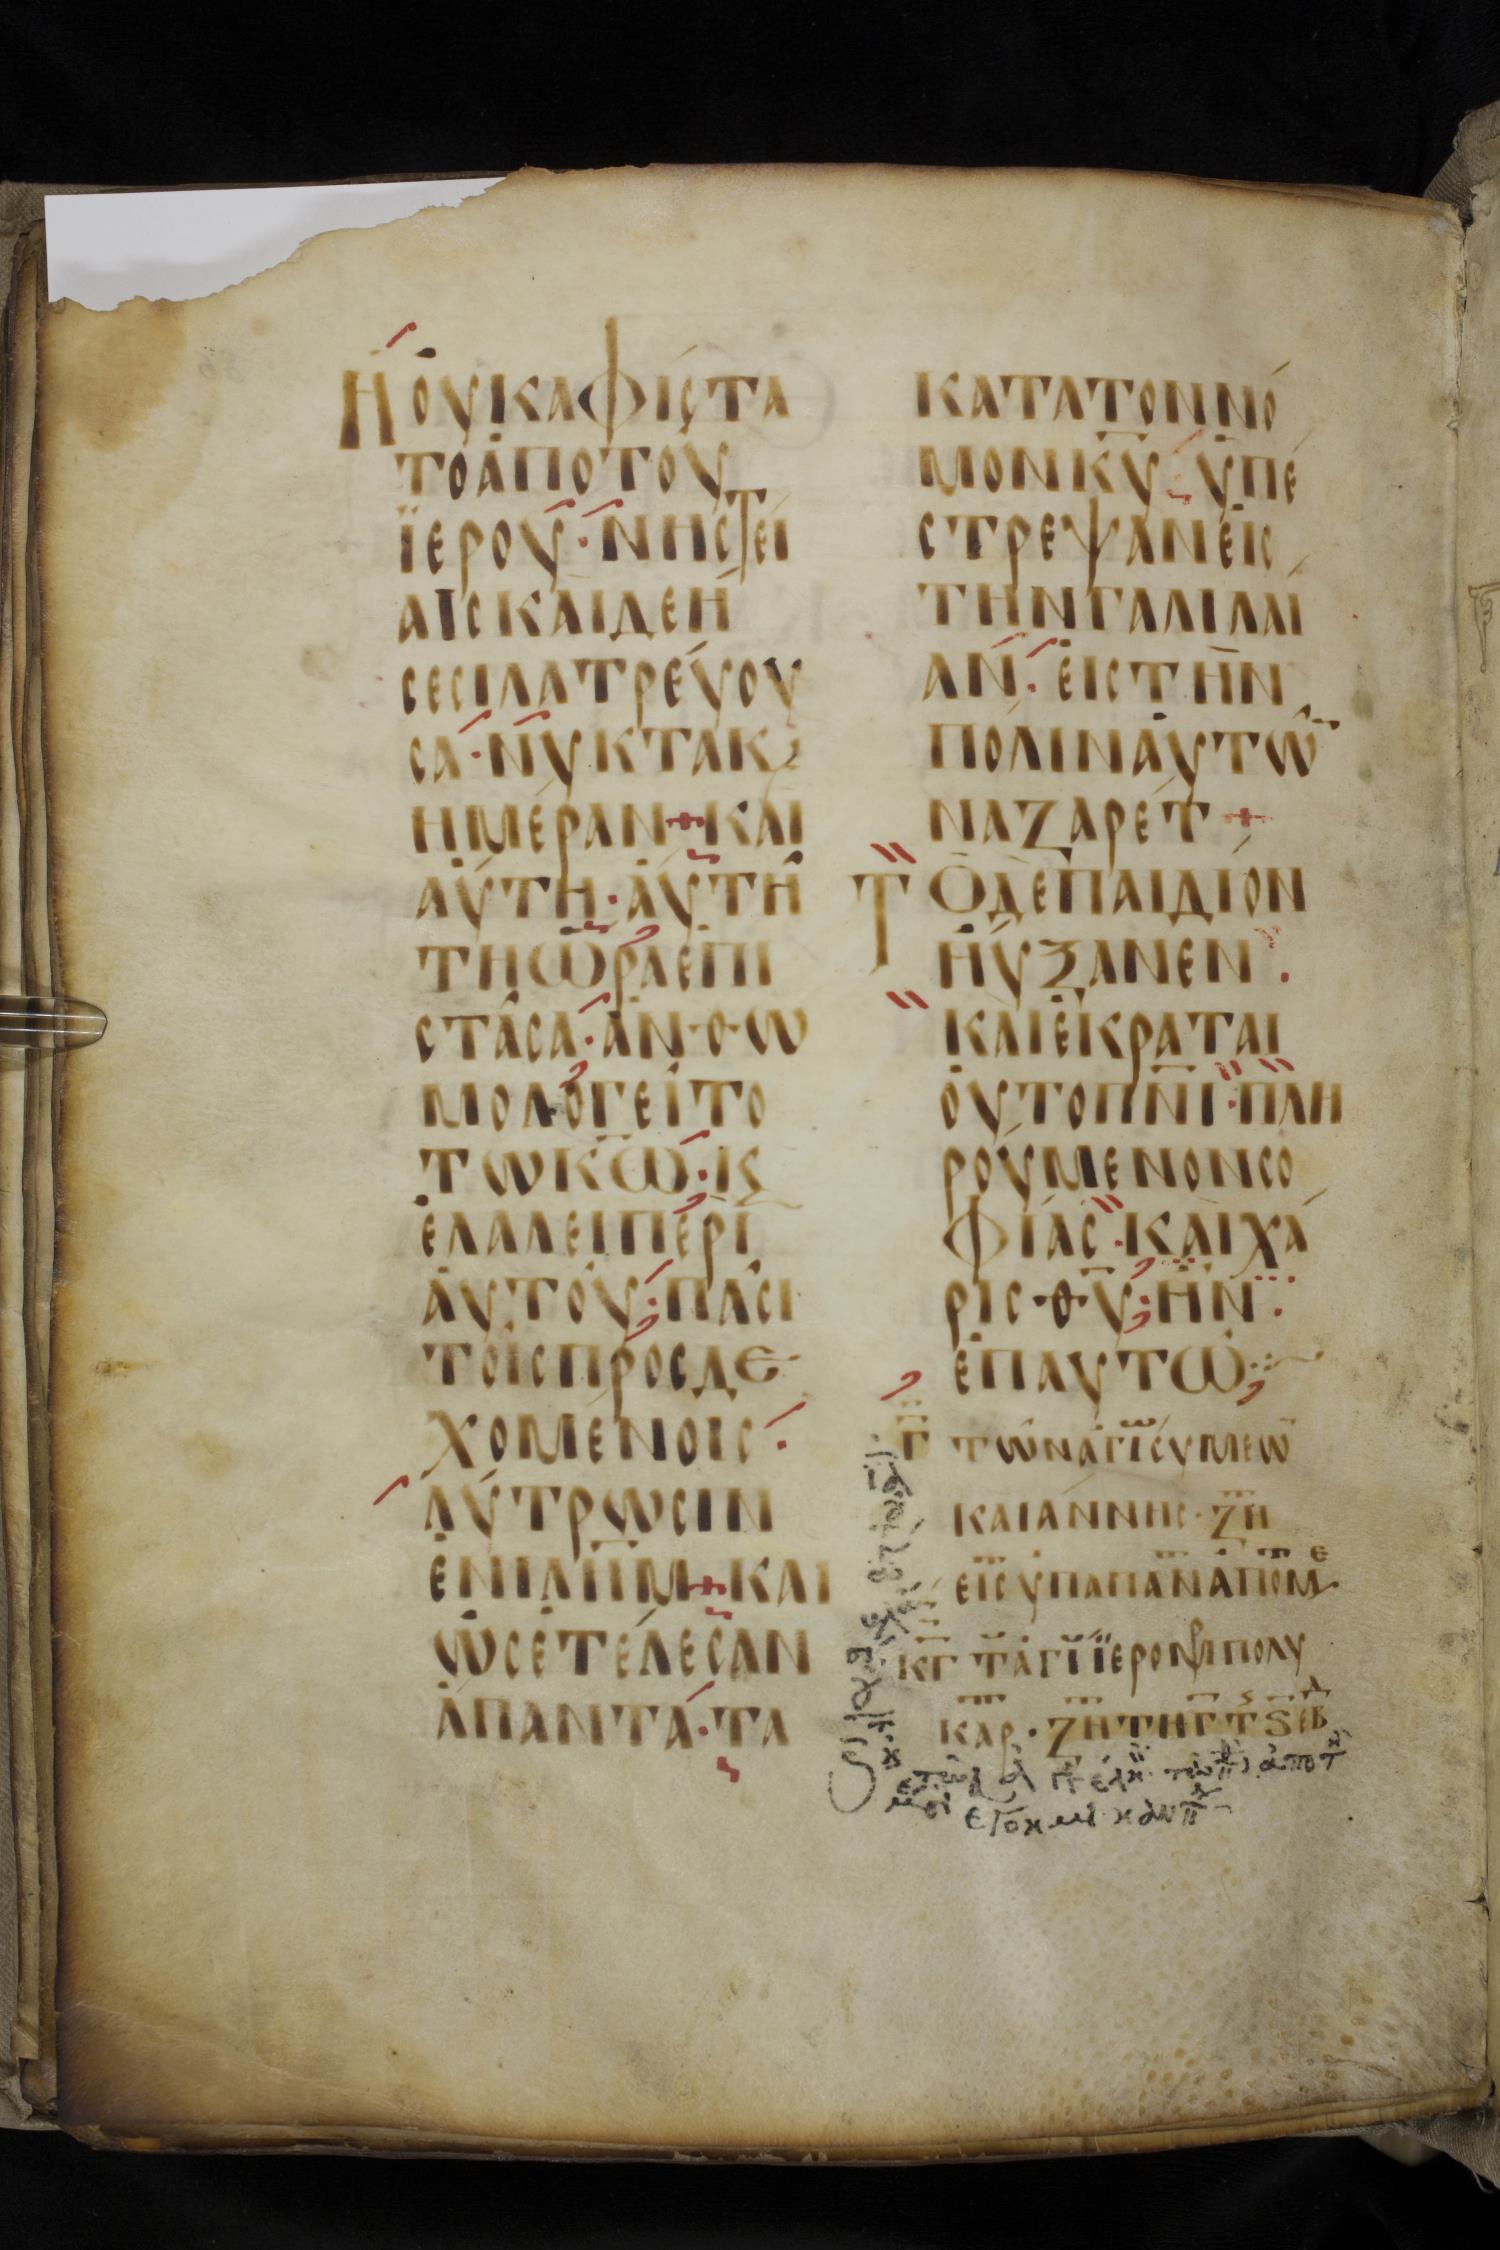 Ἡ ὀυκαφίστα
τοἀποτοῦ
ϊεροῦ· νηστεί
αισκαιδεή
σεσιλατρέυου
σα· νύκτακϗ
ημέραν+ και
ἀύτη· ἀυτῆ
τηὥραεπι
στᾶσα· ἀνθω
μολογεῖτο
τωκω̅· ϗ
ἐλαλειπερὶ
ἀυτοῦ· πᾶσι
τοῖςπροσδε
χομένοις·
λύτρωσιν
ἐνιλη̅μ+ και
ὡσετέλεσαν
ἁπαντα· τα
κατατοννό
μονκυ̅· ὑπέ
στρεψανἐις
τηνγαλιλαί
αν· ἐιςτὴν
πόλινἀυτω̅
ναζαρέτ+
Τ Ὸδὲπαιδίον
ηὔξανεν·
καὶἐκραται
οῦτοπν̅ι· πλη
ρούμενονσο
φίας· καιχά
ρις θυ̅· ἦν·
ἐπαυτῶ
Γ τῶναγι̅συμεω̅
καιάννης· ζη̅
εἰςυπαπαν̅ἀπομε
κγ̅ τ̅ἁγι̅ϊερο πολυ
καρ· ζητηγτςεβδ